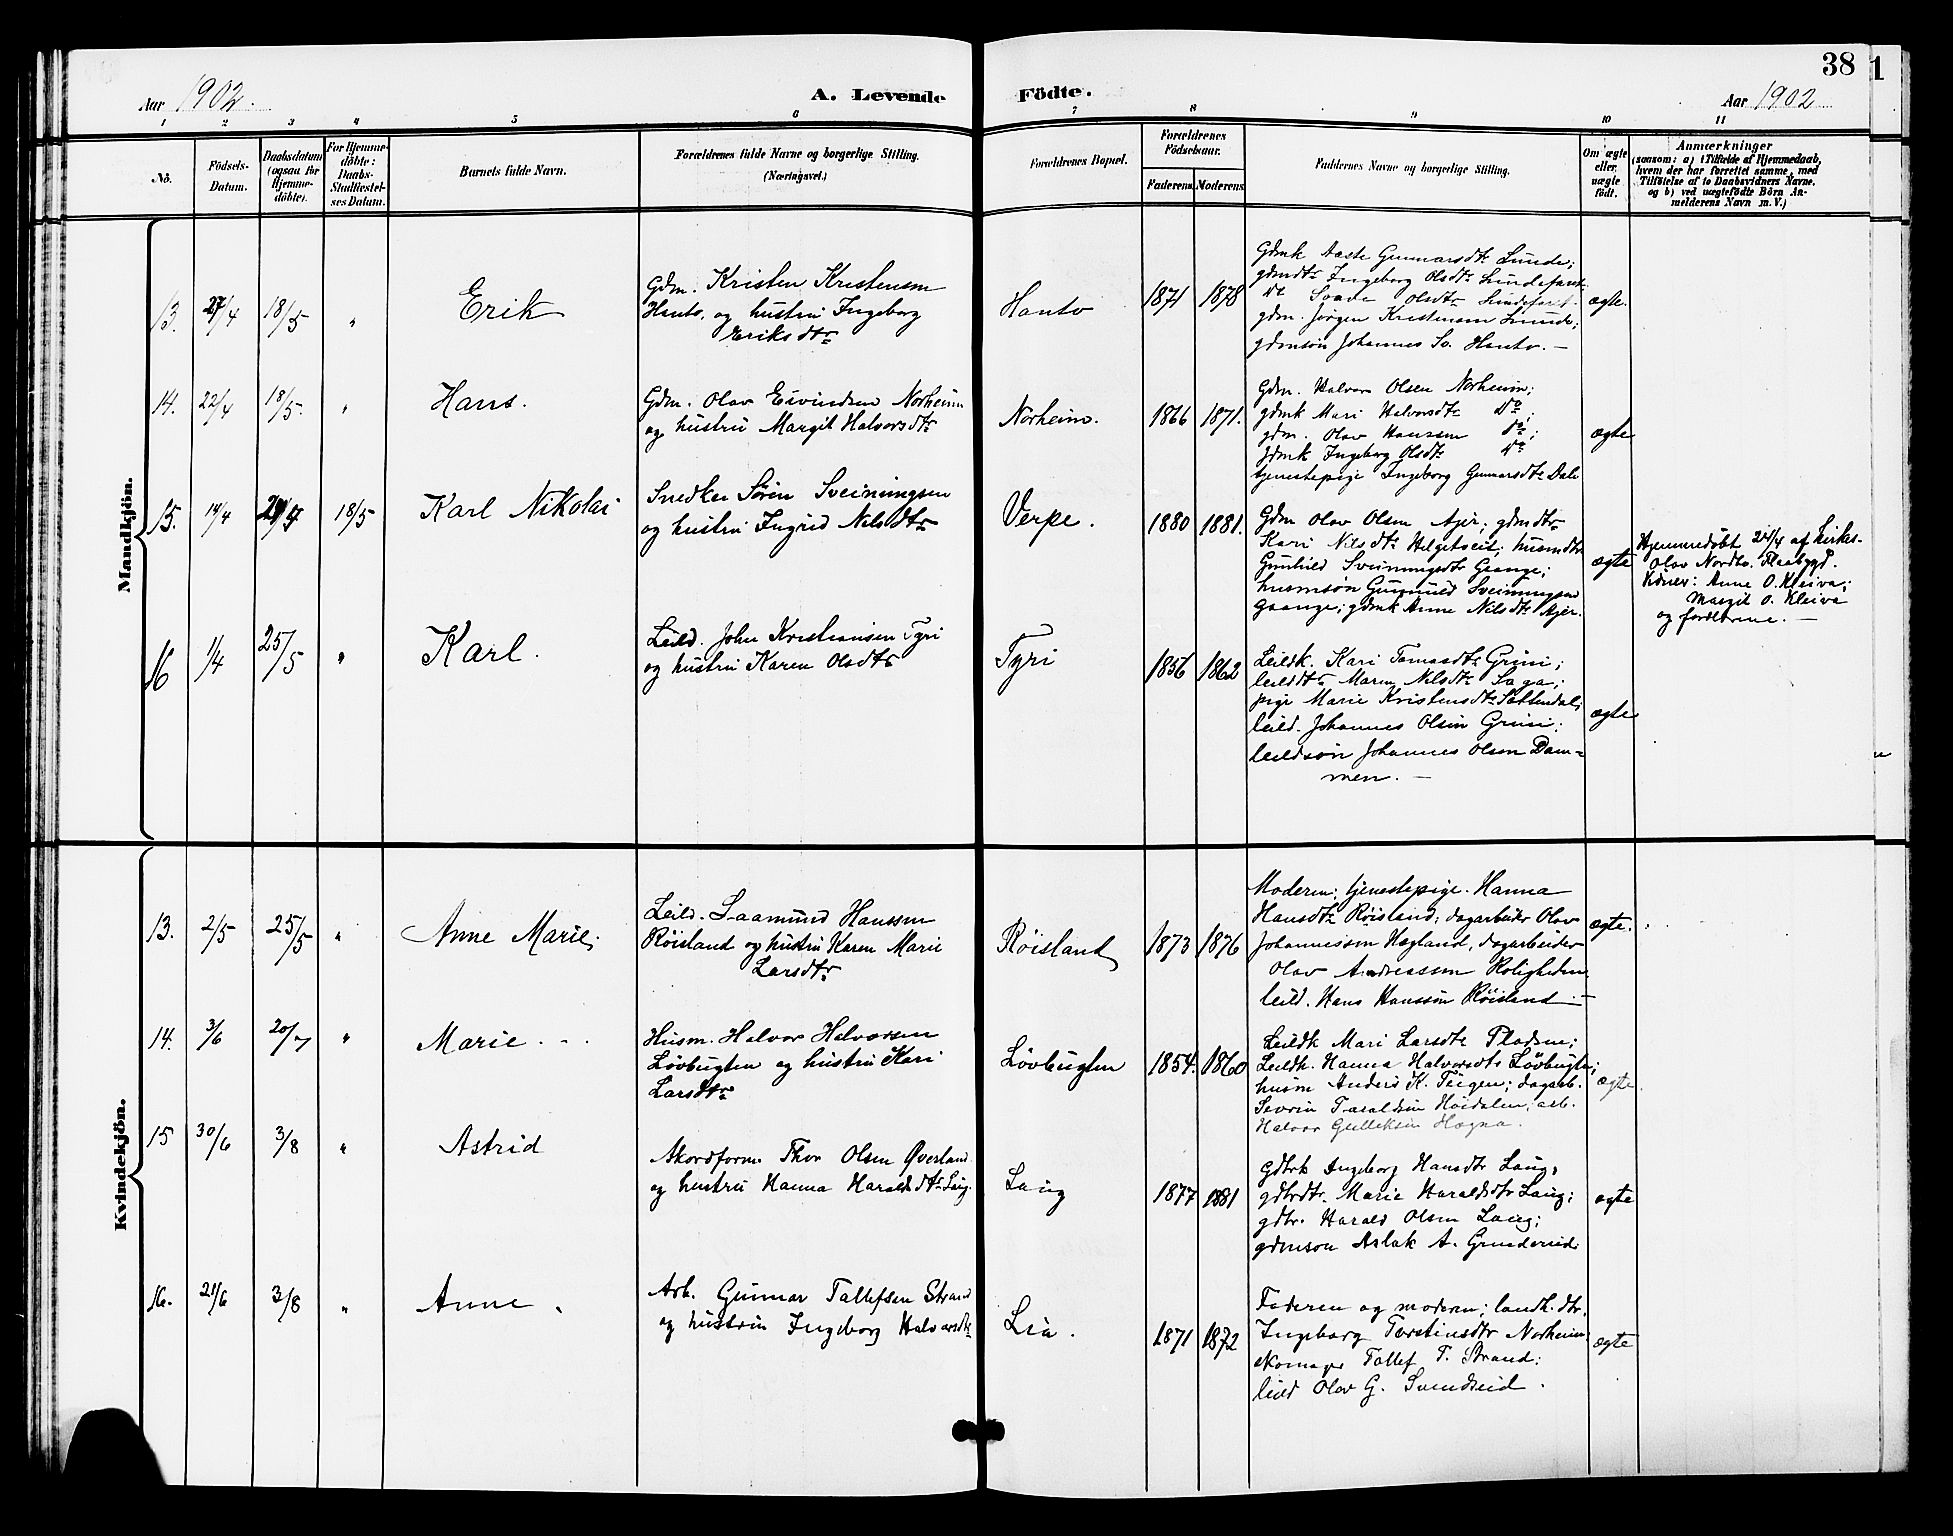 38
1
Aar 1902.
A. Levende
Födte.
Aar 1902
1 2 3 4 5 6 7 8 9 10 11
No.
Födsels-
Datum.
Daabsdatum
(ogsaa for
Hjemme-
döbte).
For Hjemme-
döbte:
Daabs-
Stadfæstel-
ses Datum.
Barnets fulde Navn.
Forældrenes fulde Navne og borgerlige Stilling.
(Næringsvei.)
Forældrenes Bopæl.
Forældrenes
Födselsaar.
Faderens.
Moderens.
Faddernes Navne og borgerlige Stilling.
Om ægte
eller
uægte
födt.
Anmærkninger
(saasom: a) i Tilfælde af Hjemmedaab,
hvem der har forrettet samme, med
Tilföielse af to Daabsvidners Navne.
og b) ved uægtefödte Börn An-
melderens Navn m. V.)
Mandkjön.
13. 27/4 18/5 " Erik
Gdm. Kristen Kristensen
Hanto, og hustru Ingeborg
Eriksdtr
Hanto 1871 1878
Gdmk Aaste Gunnarsdtr Lunde;
gdmdtr Ingeborg Olsdtr Lundefaret
do Olsdtr Lundefaret.
gdm. Jørgen Kristensen Lunde;
gdmsøn Johannes Hanto. —
ægte.
14. 22/4 18/5. " Hans.
Gdm. Olav Eivindsen Norheim
og hustru Margit Halvorsdtr
Norheim. 1866 1871.
Gdm. Halvor Olsen Norheim;
gdmk Mari Halvorsdtr do;
gdm. Olav Hansen do;
gdmk Ingeborg Olsdtr do
tjenestepige Ingeborg Gunnarsdtr Dale
ægte
15. 14/4 18/5 Karl Nikolai
Snedker Søren Sveinungsen
og hustru Ingrid Nilsdtr
Verpe. 1880 1881.
Gdm Olav Olsen Ajer; gdmdtr
Kari Nilsdtr Helgetveit; husmdtr
Gunhild Sveinungsdtr Gaange;
husmsøn Gunnuld Sveinungsen
Gaange; gdmk Anne Nilsdtr Ajer.
ægte
Hjemmedøbt 24/4 af kirkes.
Olav Nordbø. Flaabygd.
Vidner: Anne O. Kleiva;
Margit O. Kleiva
og forældrene. —
16 1/4 25/5 " Karl.
Leild. John Kristiansen Tyri
og hustru Karen Olsdtr
Tyri 1856 1862
Leildk. Kari Tomasdtr Grini;
leilddtr Maren Nilsdtr Saga;
pige Marie Kristensdtr Sættendal;
leild. Johannes Olsen Grini;
leildsøn Johannes Olsen Dam-
men. —
ægte
Kvindekjön.
13. 2/5 25/5 " Anne Marie;
Leild. Saamund Hanssen
Røisland og hustru Karen Marie
Larsdtr
Røisland 1873 1876
Moderen; tjenestepige. Hanna
Hansdtr Røisland; dagarbeider Olav
Johannessen Hægland, dagarbeider
Olav Andreassen Roligheden
leild. Hans Hanssøn Røisland. —
ægte.
14. 3/6 20/7 " Marie
Husm. Halvor Halvorsen
Løvbugten og hustru Kari
Larsdtr
Løvbugten 1854. 1860
Leildk Mari Larsdtr Pladsen;
Leildk. Hanna Halvorsdtr Løvbugten;
husm Anders K. Teigen; dagarb.
Sevrin Taraldsen Høidalen; arb.
Halvor Gulleksen Høgna.
ægte.
15 30/6 3/8 " Astrid
Akordform. Thor Olsen Øverland
og hustru Hanna Haraldsdtr Laug.
Laug 1877 1881
Gdbrk Ingeborg Hansdtr Laug;
gdbrdtr. Marie Haraldsdtr Laug;
gdbr. Harald Olsen Laug;
gdmson Aslak A. Grunderud.
ægte
16. 21/6 3/8 " Anne.
Arb. Gunnar Tallefsen Strand
og hustru Ingeborg Halvorsdtr
Lia. 1871 1872
Faderen og moderen; landh. dtr.
Ingeborg Torsteinsdtr Norheim;
skomager Tallef T. Strand;
leild Olav G. Svendseid.
ægte